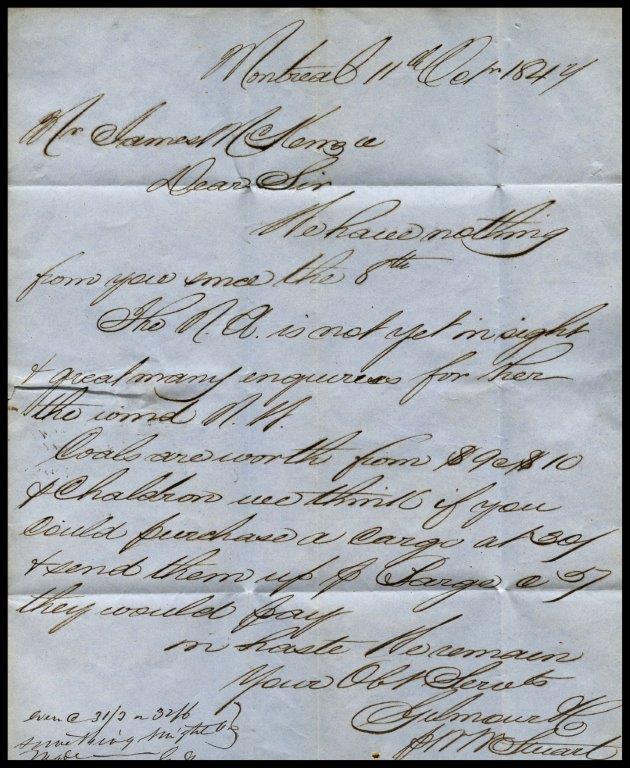 Montreal 11th Octr 1847
Mr James McKenzie
Dear Sir
We have nothing
from you since the 8th
The N.A. is not yet in sight
& great many enquires for her
the wind N.W.
Coals are worth from $9 @ $10
& Chaldron we think if you
could purchase a cargo at 30/
& send them up p Barge @ 5/
they would pay
in haste We remain
Your Obt Servts
Gilmour & Co
p W Stuart
even @ 31/3 or 32/6
something might be
made